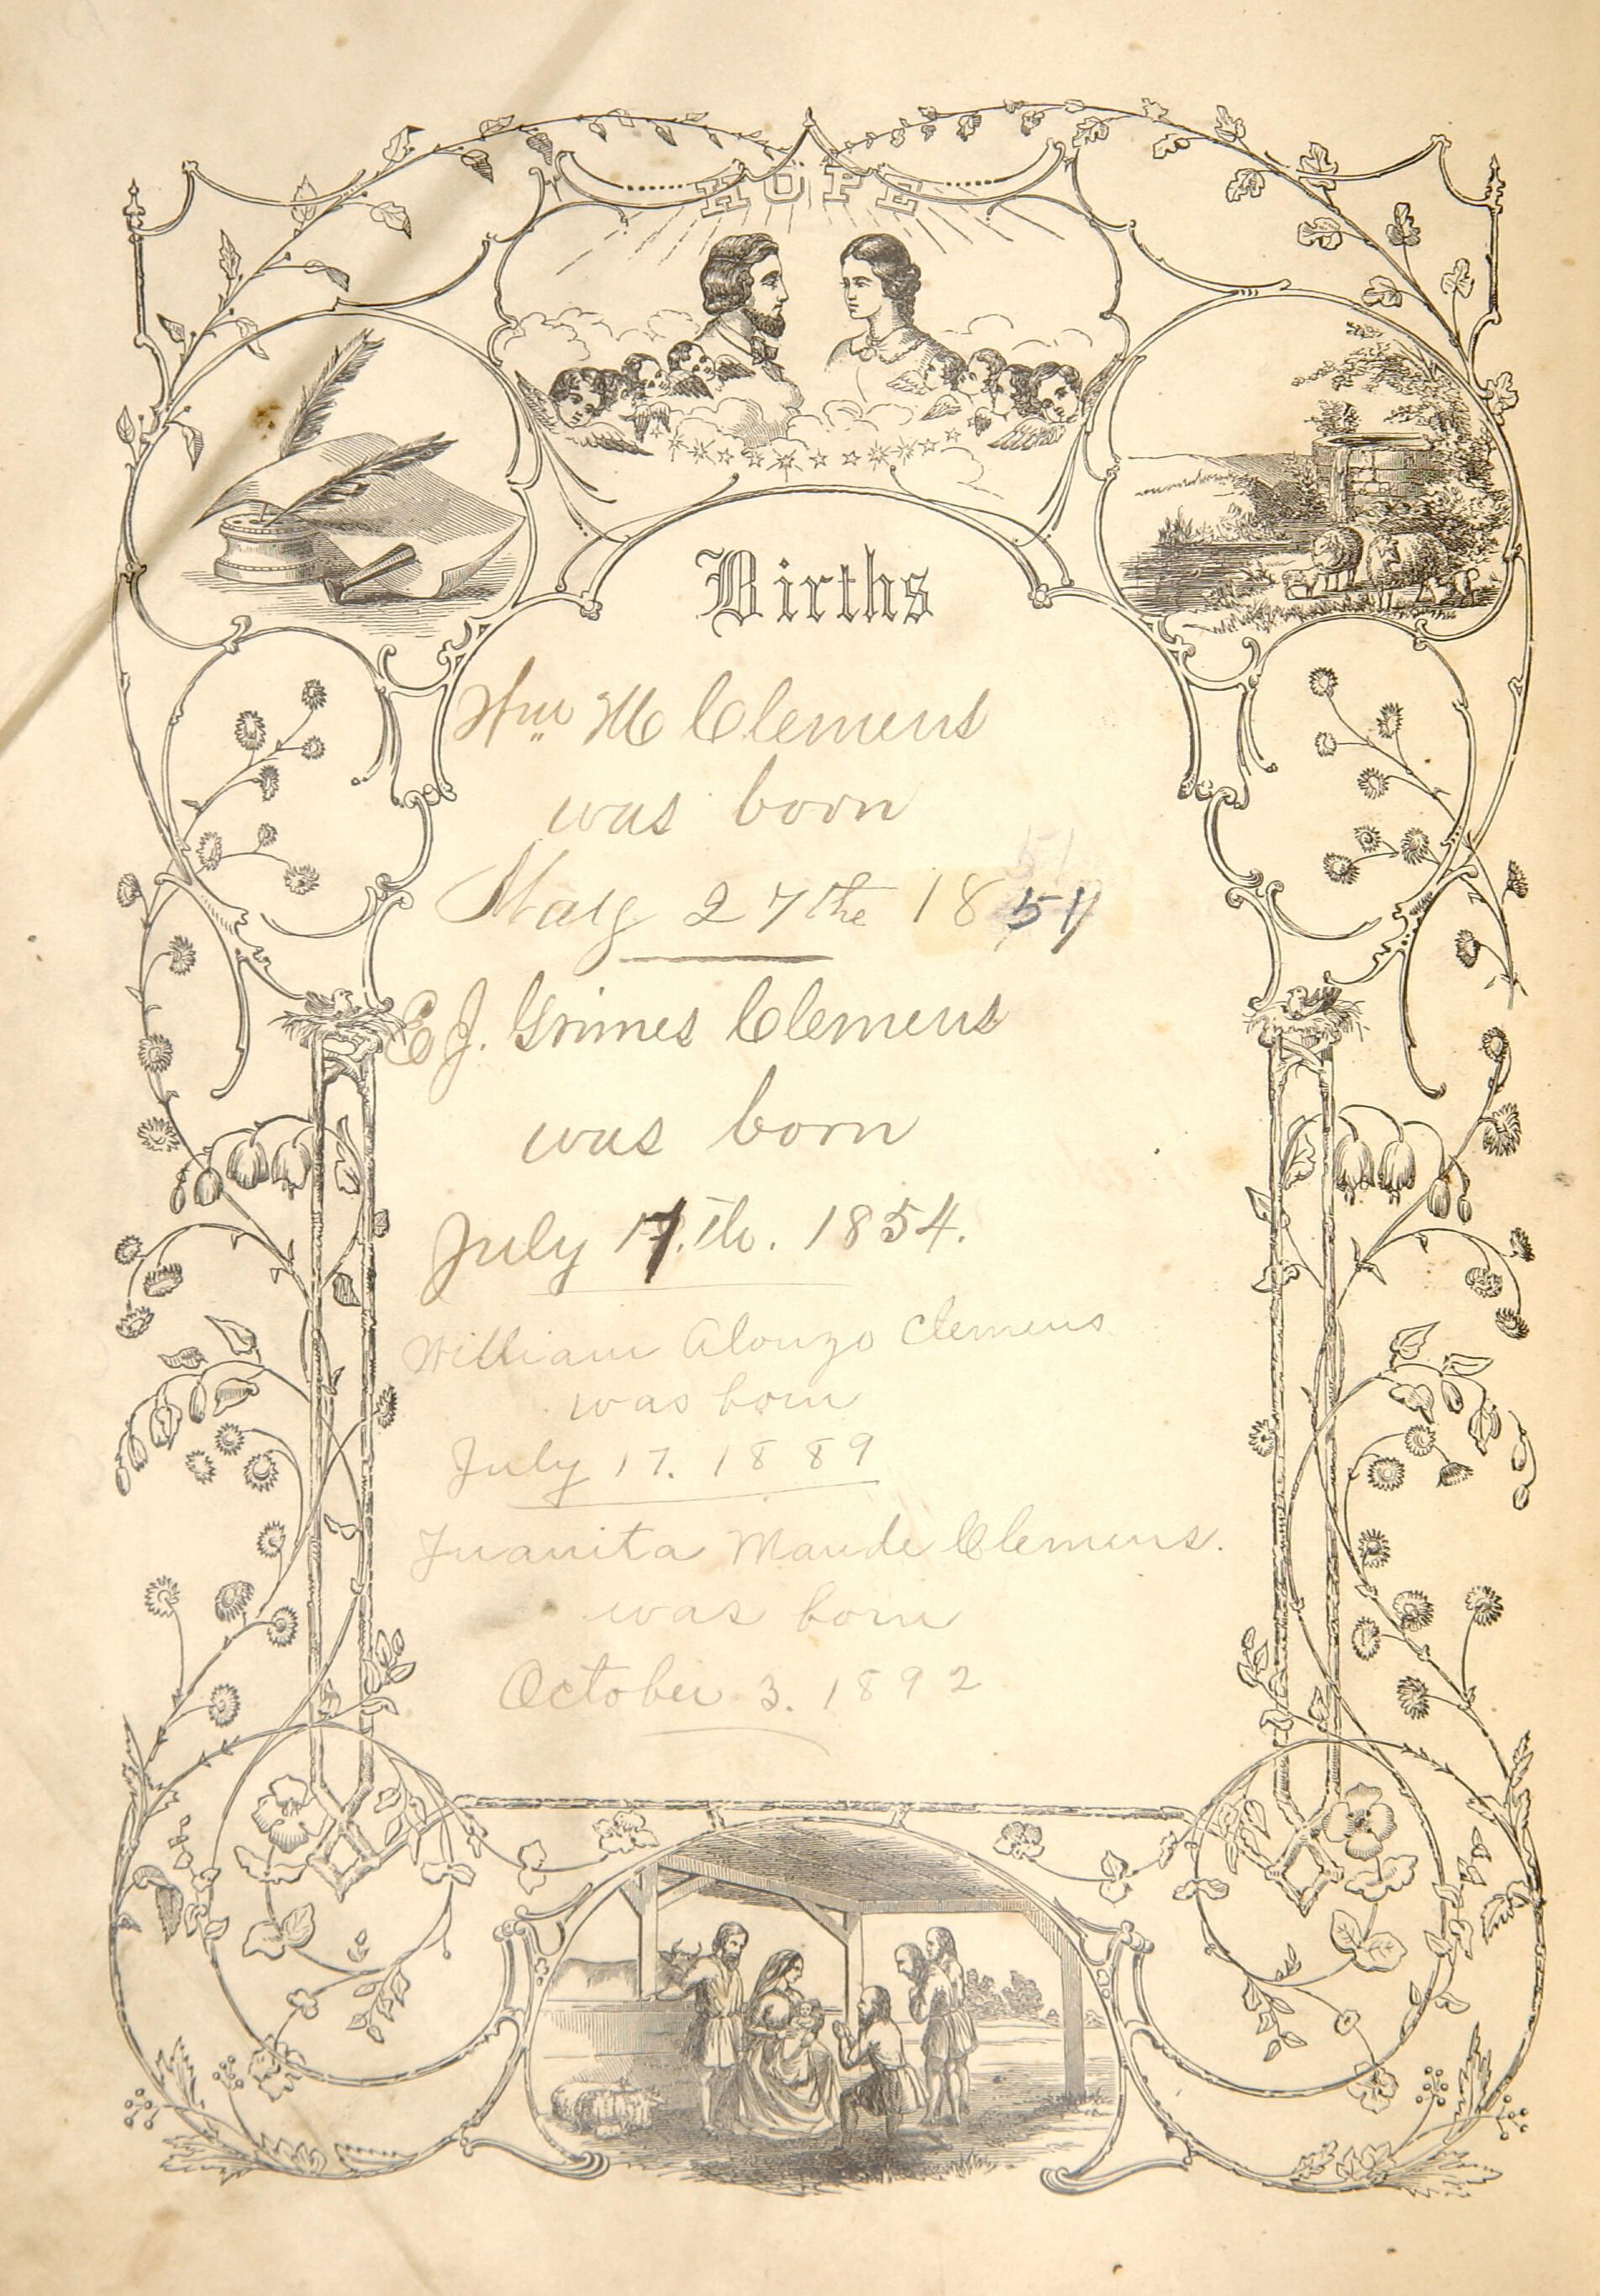 HOPE
Births
Wm M Clemens
was born
May 27th 1851
E J. Grimes Clemens
was born
July 17.th. 1854.
William Alonzo Clemens
was born
July 17. 1889
Juanita Maude Clemens.
was born
October 3. 1892